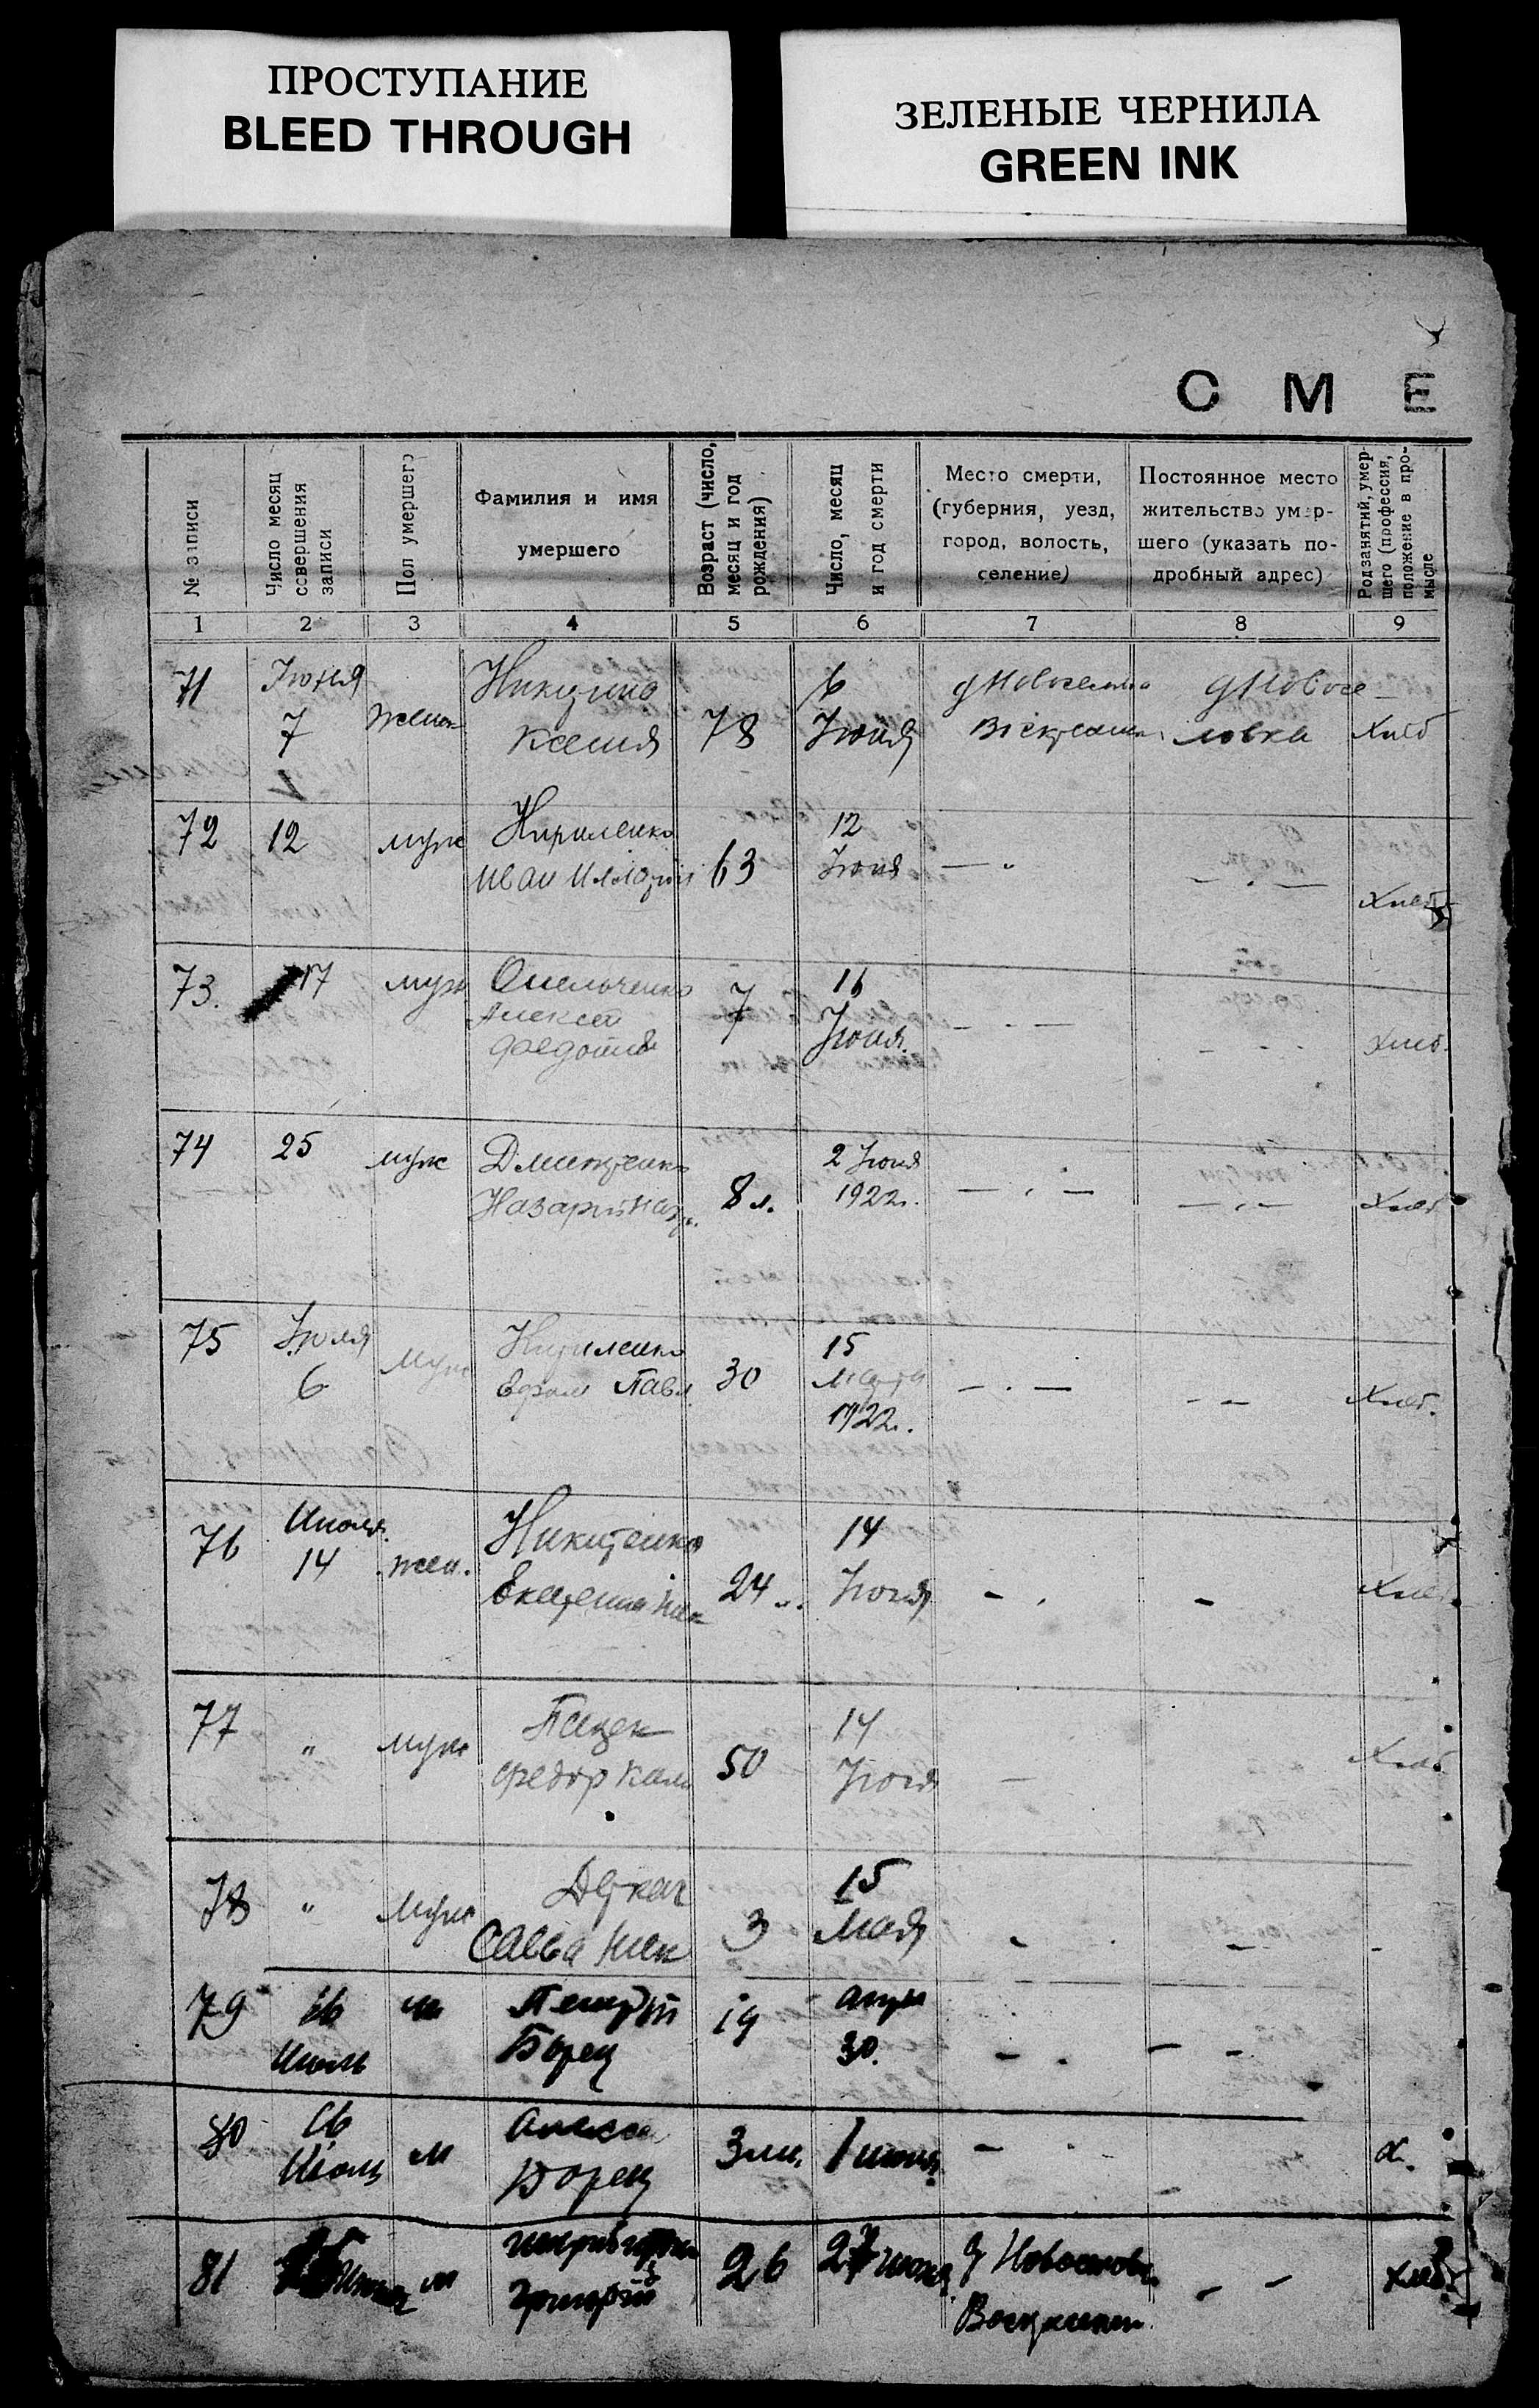 ПРОСТУПАНИЕ
BLEED THROUGH
ЗЕЛЕНЫЕ ЧЕРНИЛА
GREEN INK
С М Е
№ записи
Число месяц
совершения
записи
Пол умершего
Фамилия и имя
умершего
Возраст (число,
месяц и год
рождения)
Число, месяц
и год смерти
Место смерти,
(губерния, уезд,
город, волость,
селение)
Постоянное место
жительство умер-
шего (указать по-
дробный адрес)
Род занятий, умер-
шего (профессия,
положение в про-
мысле
1 2 3 4 5 6 7 8 9
71 Июня 7 женск
Ксения 78 6 Июня
ловка Хлеб
72 12 муж Кириленко
Иван 63 12 Июня — " — . — Хлеб
73. 17 муж Омельченко
Алексей 7 16 Июня. — . — - - - Хлеб.
74 25 муж Дмитренко
Назарий 8 л. 2 Июня 1922 г. — . — — . — Хлеб
75 Июля 6 муж Кириленко
Павл 30 15 Марта 1922 г. — . — - - Хлеб.
76 Июля 14 жен. Никитенко
24 14 Июня - . - Хлеб
77 " муж
Федор 50 14 Июня — Хлеб
78 " муж Деркач
Савва 3 15 Мая - . - -
79 16 Июль м
Борец 19 апр 30. - . - -
80 16 Июль м Алексе
Борец 3 м. 1 июня - . - х.
81 м
Григорий 26 27 июня д Новоселовк - - хлеб